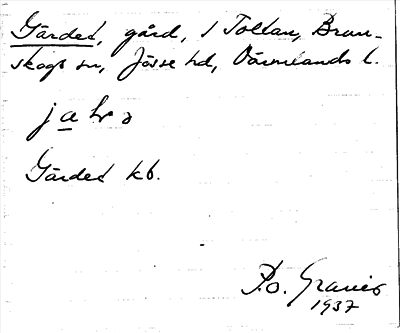 Gärdet, gård, i Toltan, Brun-
skogs sn, Jösse hd, Värmlands l.
Gärdet kb.
P.O. Granér
1937